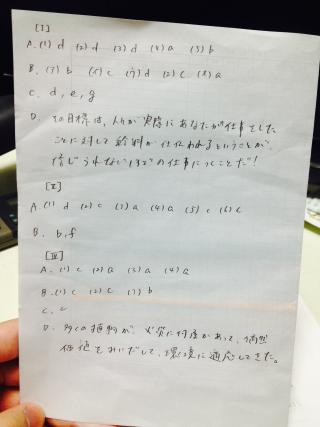 [I]
A. (1) d (2) d (3) d (4) a (5) b
B. (3) b (5) c (7) d (2) c (8) a
C. d, e, g
D. その目標は、人々が実際にあなたが仕事をした
ことに対して給料が仕払われるということが
信じられないほどの仕事につくことだ!
[II]
A. (1) d (2) c (3) a (4) a (5) c (6) c
B. b, f
[III]
A. (1) c (2) a (3) a (4) a
B. (1) c (2) c (3) b
C. c
D. 多くの植物が、火災に何度かあって、偶然
価値をみいだして、環境に適応してきた。